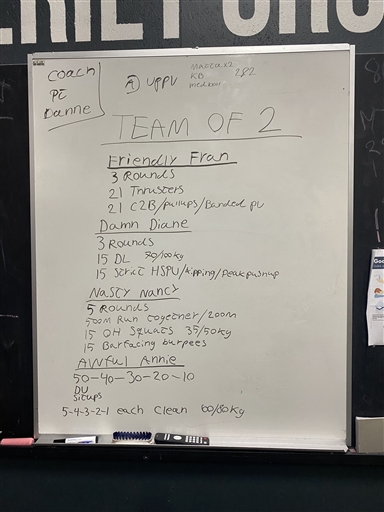 coach
PE
Danne
A) uppv
matta x2
KB
medboll
282
TEAM OF 2
Friendly Fran
3 Rounds
21 Thrusters
21 C2B/pullups/Banded pu
Damn Diane
3 Rounds
15 DL 70/100kg
15 strict HSPU/kipping/peakpushup
Nasty Nancy
5 Rounds
500m Run together/200m
15 OH Squats 35/50kg
15 Barfacing burpees
Awful Annie
50-40-30-20-10
DU
Situps
5-4-3-2-1 each clean 60/80kg